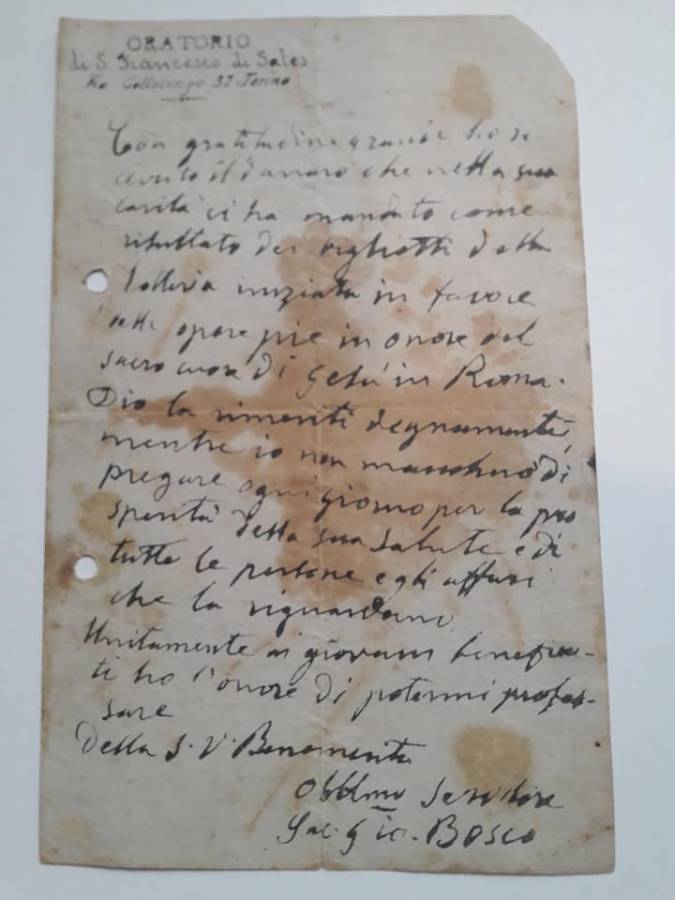 ORATORIO
di S. Francesco di Sales
Via Cottolengo 32-Torino
Con gratitudine grande ho ri
cevuto il danaro che nella sua
carità ci ha mandato come
risultato dei biglietti della
lotteria iniziata in favore
delle opere pie in onore del
sacro cuore di Gesù in Roma.
Dio la rimeriti degnamente,
mentre io non mancherò di
pregare ogni giorno per la pro
sperità della sua salute e di
tutte le persone e gli affari
che la riguardano.
Unitamente ai giovani benefica-
ti ho l'onore di potermi profes-
sare
Della S. V. Benemerita
Obblmo servitore
Sac. Gio. Bosco